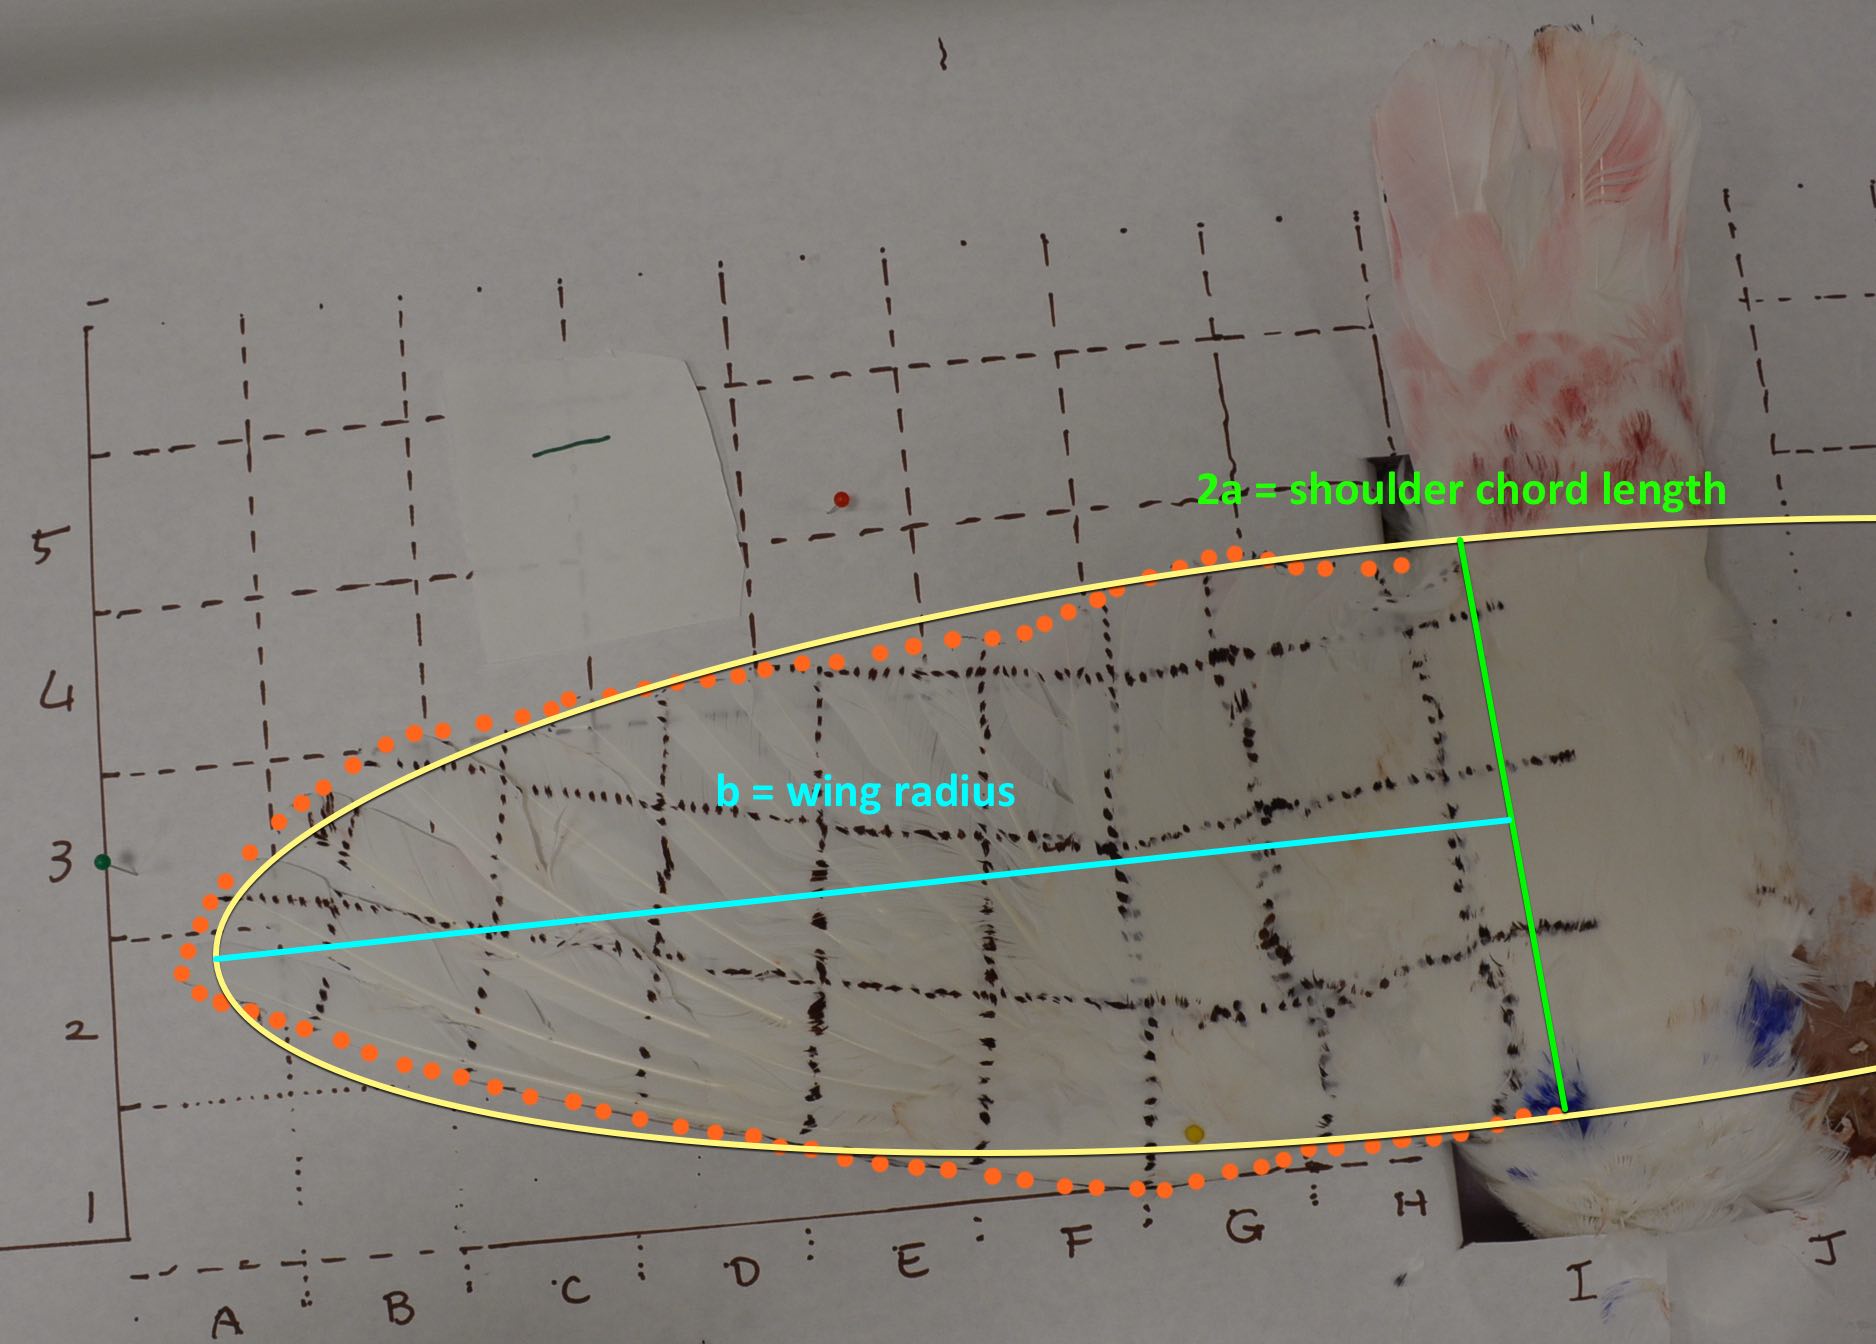 2a = shoulder chord length
5
4
b = wing radius
3
2
1
A B C D E F G H I J